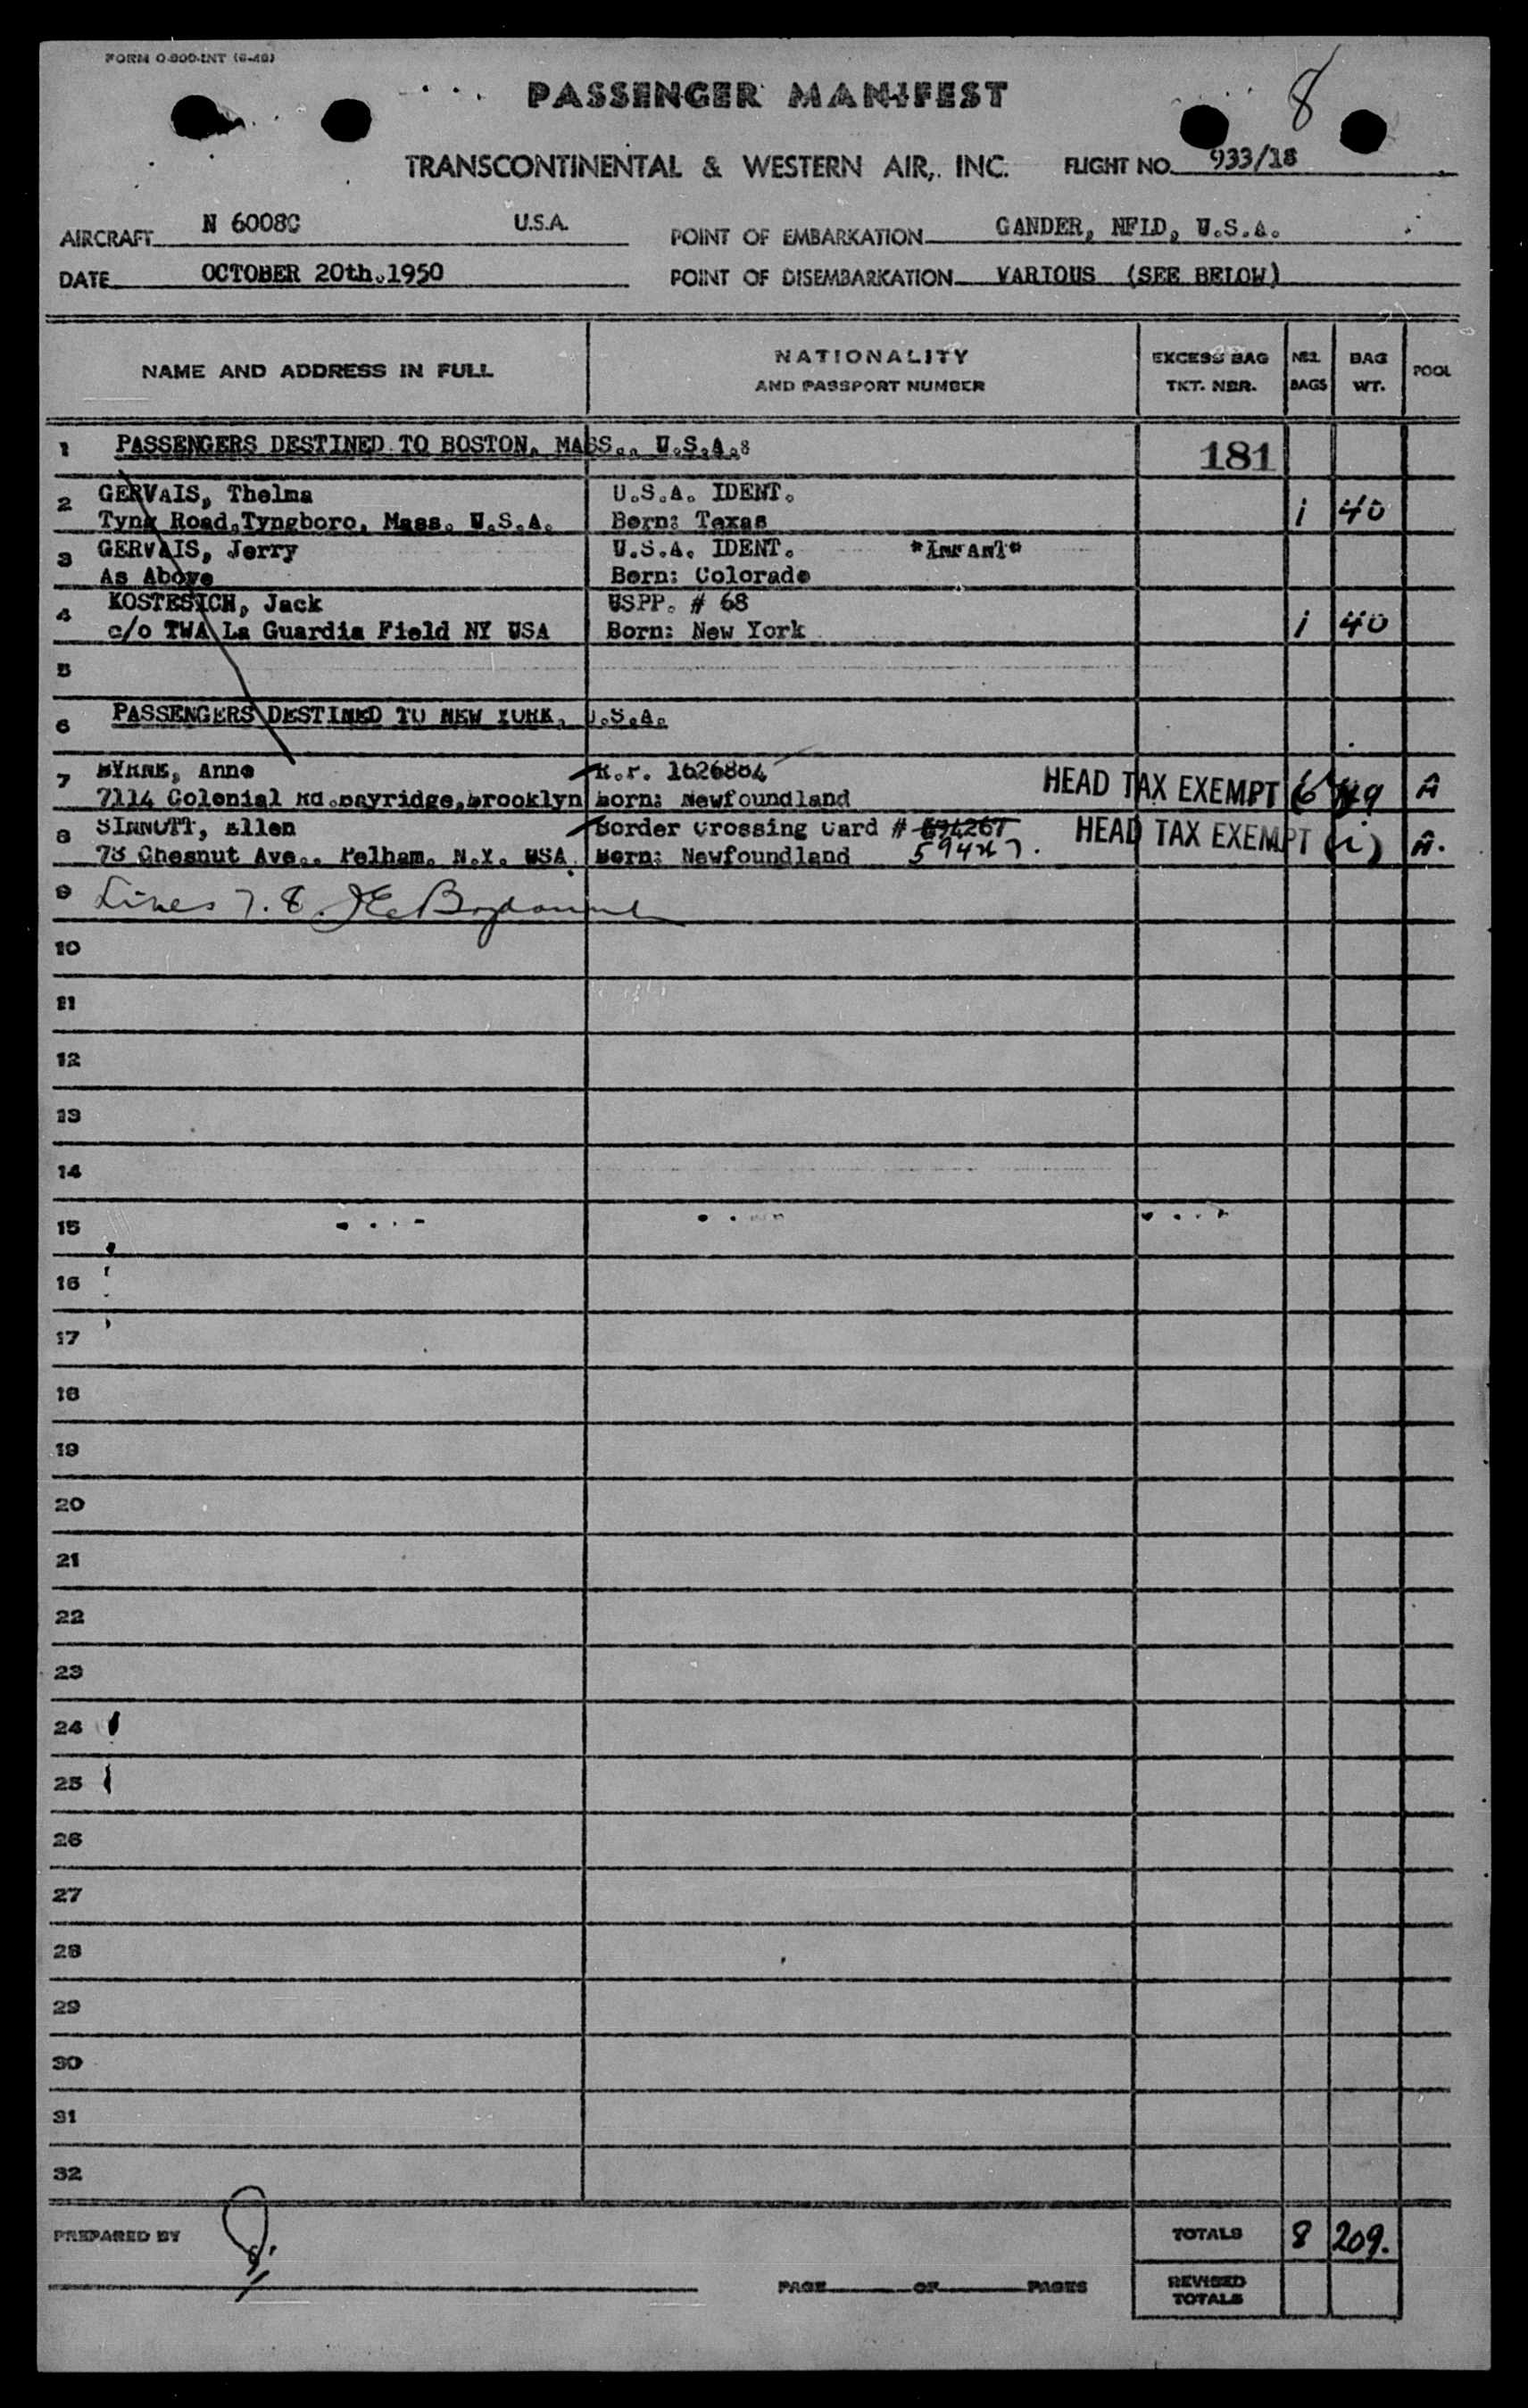 FORM O-800-INT (6-48)
8
PASSENGER MANIFEST
TRANSCONTINENTAL & WESTERN AIR, INC. FLIGHT NO. 933/18
AIRCRAFT N 6008C U.S.A. POINT OF EMBARKATION GANDER, NFLD, U.S.A.
DATE OCTOBER 20th.1950 POINT OF DISEMBARKATION VARIOUS (SEE BELOW)
NAME AND ADDRESS IN FULL NATIONALITY AND PASSPORT NUMBER EXCESS BAG TKT. NBR. BAGS BAG WT. POOL
1 PASSENGERS DESTINED TO BOSTON, MASS., U.S.A. 181
2 GERVAIS, Thelma U.S.A. IDENT. 1 40
Tyng Road,Tyngboro, Mass. U.S.A. Born: Texas
3 GERVAIS, Jerry U.S.A. IDENT. "Infant"
As Above Born: Colorado
4 KOSTESICH, Jack USPP. # 68 1 40
c/o TWA La Guardia Field NY USA Born: New York
5
6 PASSENGERS DESTINED TO NEW YORK, U.S.A.
7 BYRNE, Anne R.P. HEAD TAX EXEMPT 6
7114 Colonial Rd.Bayridge,Brooklyn Born: Newfoundland
8 SINNOTT, Ellen Border Crossing Card # HEAD TAX EXEMPT (1)
78 Chesnut Ave., Pelham, N.Y. USA Born: Newfoundland
9 Lines 7.8.
10
11
12
13
14
15
16
17
18
19
20
21
22
23
24
25
26
27
28
29
30
31
32
PREPARED BY TOTALS 8 209.
PAGE OF PAGES REVISED TOTALS